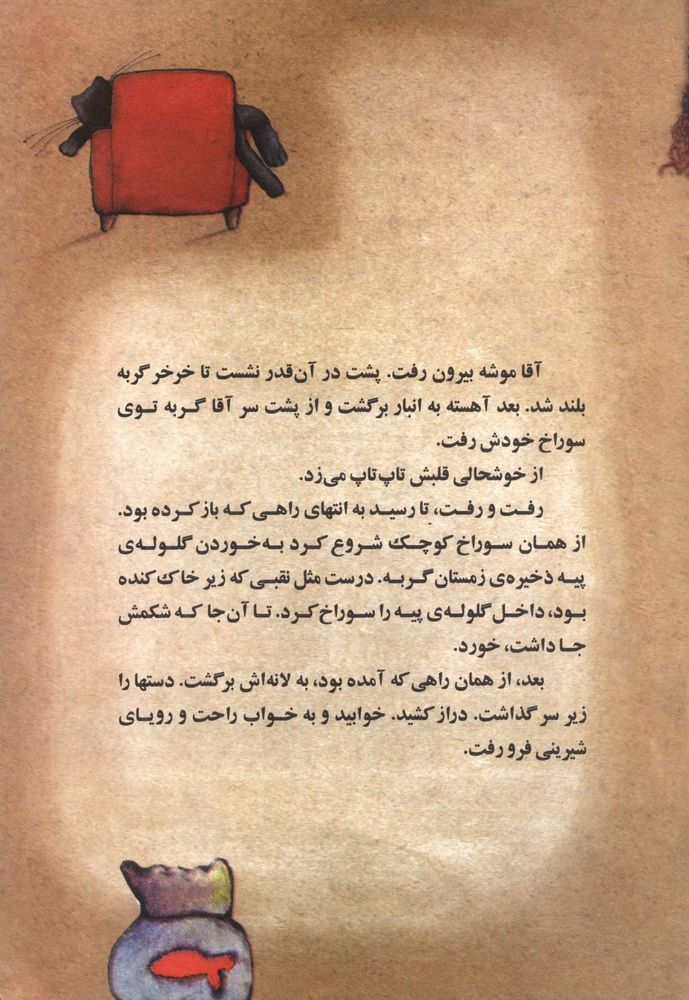 آقا موشه بیرون رفت. پشت در آن‌قدر نشست تا خرخر گربه
بلند شد. بعد آهسته به انبار برگشت و از پشت سر آقا گربه توی
سوراخ خودش رفت.
از خوشحالی قلبش تاپ‌تاپ می‌زد.
رفت و رفت، تا رسید به انتهای راهی که باز کرده بود.
از همان سوراخ کوچک شروع کرد به‌خوردن گلوله‌ی
پیه ذخیره‌ی زمستان گربه. درست مثل نقبی که زیر خاک کنده
بود، داخل گلوله‌ی پیه را سوراخ کرد. تا آن‌جا که شکمش
جا داشت، خورد.
بعد، از همان راهی که آمده بود، به لانه‌اش برگشت. دستها را
زیر سر گذاشت. دراز کشید. خوابید و به خواب راحت و رویای
شیرینی فرو رفت.